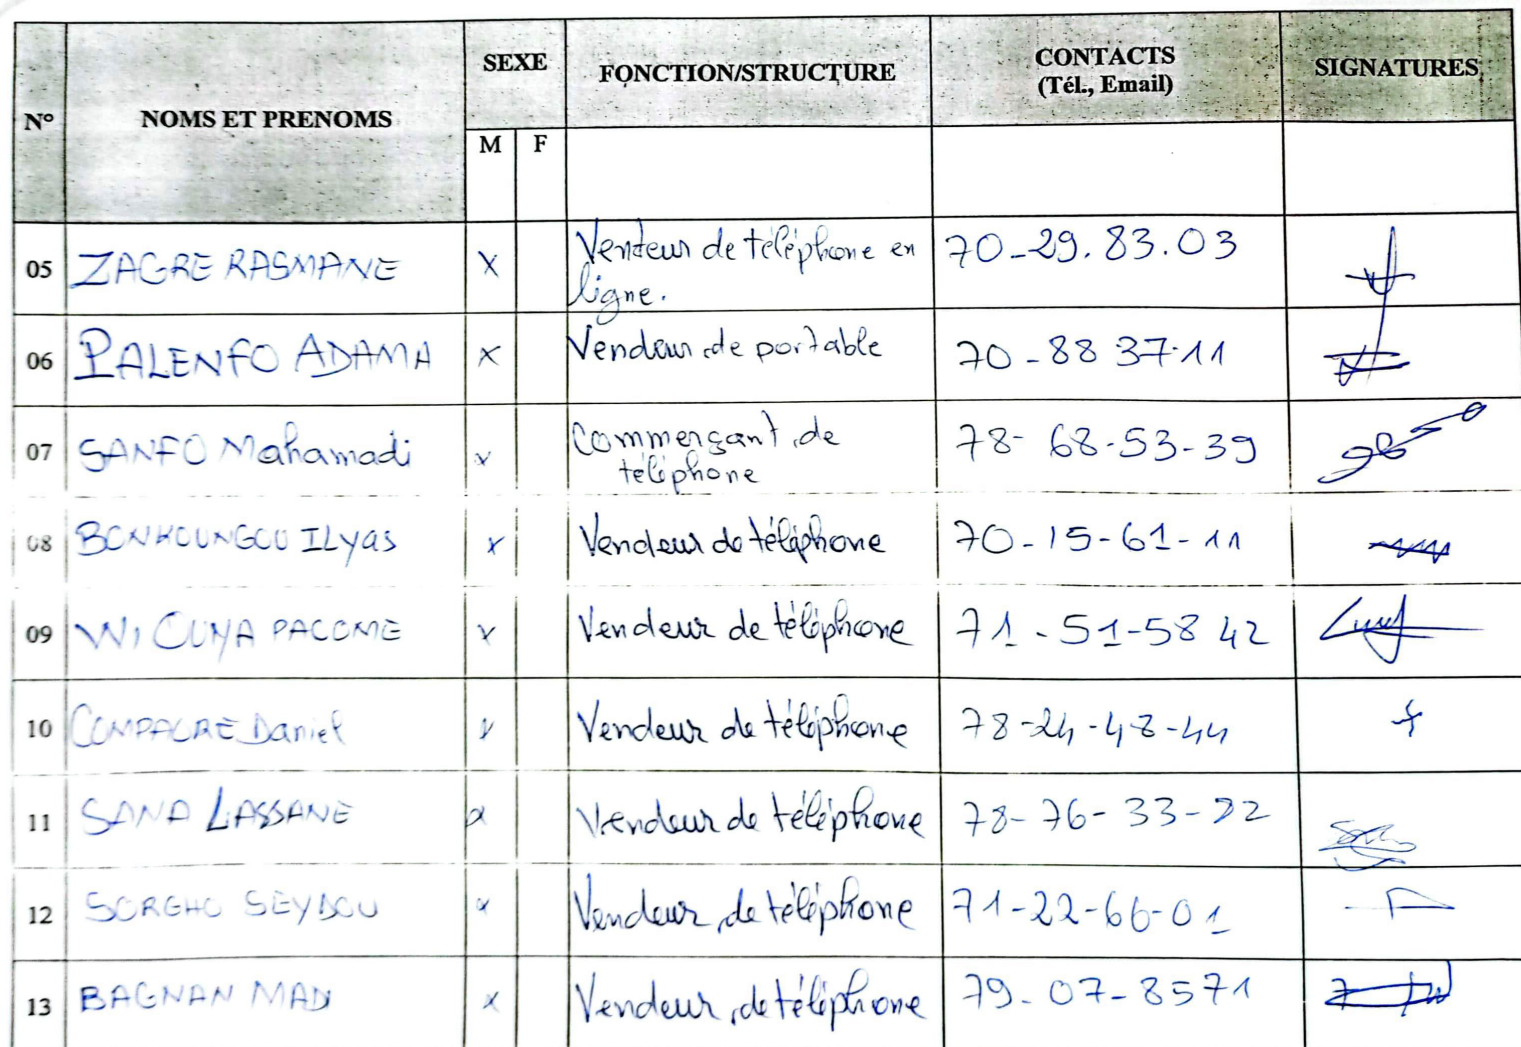 N° NOMS ET PRENOMS SEXE FONCTION/STRUCTURE CONTACTS SIGNATURES
(Tél., Email)
M F
05 ZAGRE RASMANE X Vendeur de téléphone en 70-29.83.03
ligne.
06 PALENFO ADAMA X Vendeur de portable 70-88 37.11
07 SANFO Mahamadi x Commerçant de 78-68-53-39
téléphone
08 BONKOUNGOU ILyas x Vendeur de téléphone 70-15-61-11
09 PACOME x Vendeur de téléphone 71-51-58 42
10 COMPAORE Daniel x Vendeur de téléphone 78-24-48-44
11 SANA LASSANE x Vendeur de téléphone 78-76-33-22
12 SORGHO SEYDOU x Vendeur de téléphone 71-22-66-01
13 BAGNAN MADI x Vendeur de téléphone 79-07-8571